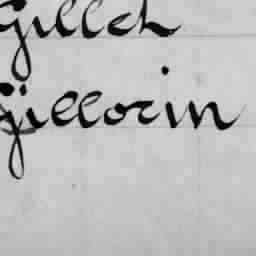 Gillet
Gillorin